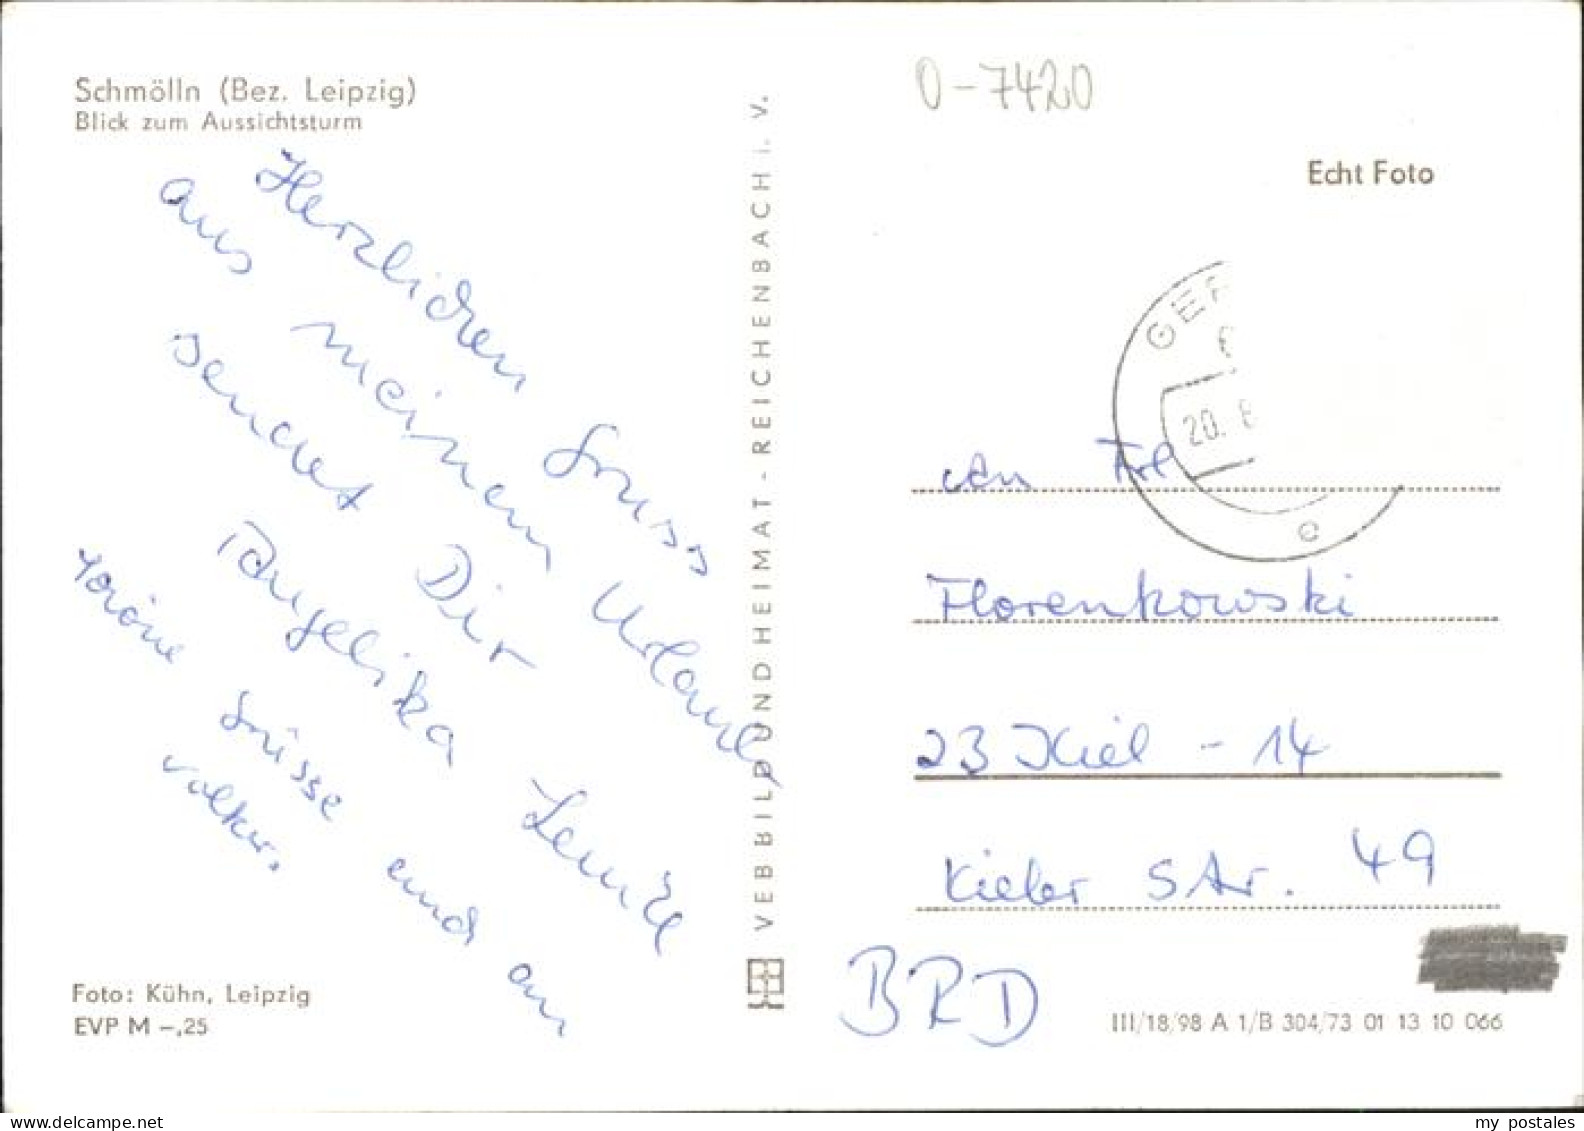 Schmölln (Bez. Leipzig)
Blick zum Aussichtsturm
Herzlichen Gruss
aus meinem Urlaub
sendet Dir
Angelika Lemke
schöne Grüsse auch an
Volker.
Foto: Kühn, Leipzig
EVP M –,25
VEB BILD UND HEIMAT - REICHENBACH i. V.
0-7420
Echt Foto
GER
20. 8
e
An Frl
Florenkowski
23 Kiel - 14
Kieler Str. 49
BRD
III/18/98 A 1/B 304/73 01 13 10 066
my postales